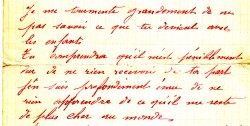 Je me tourmente grandement de ne
pas savoir ce que tu deviens avec
les enfants
Tu comprendra qu'il m'est péniblement
dur de ne rien recevoir de ta part
j'en suis profondement émue de ne
rien apprendre de ce qu'il me reste
de plus cher au monde.